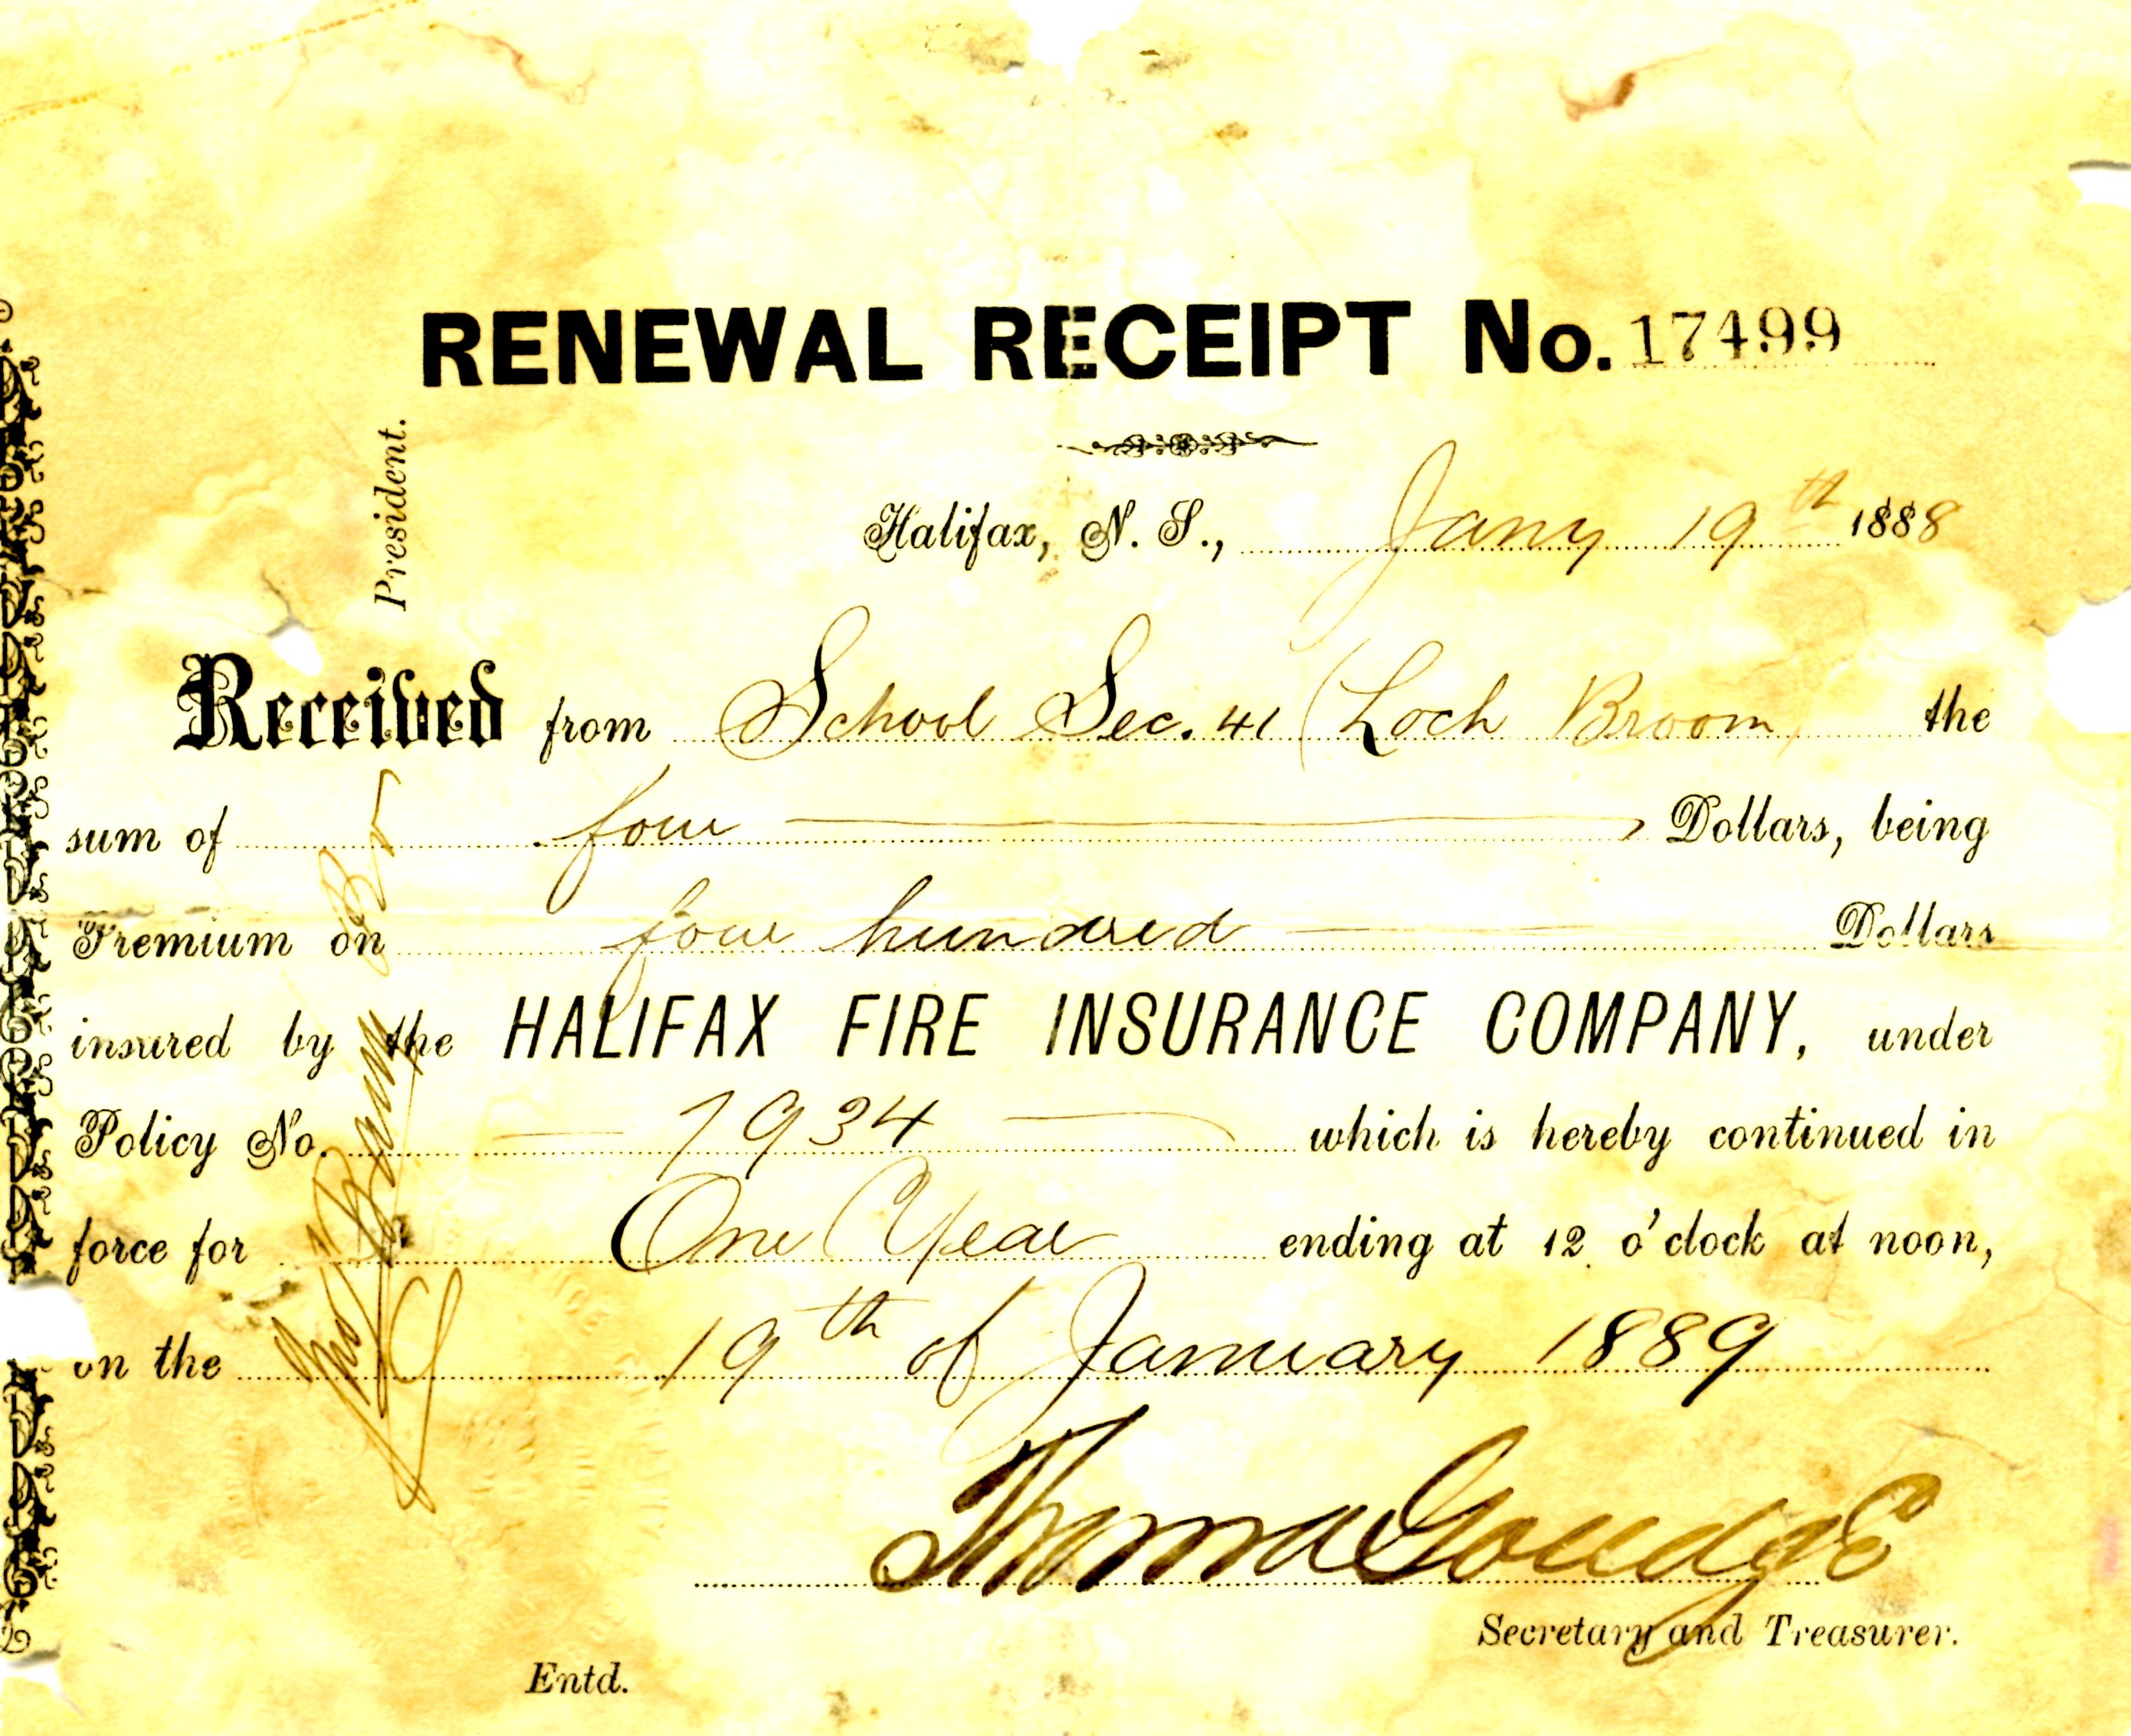 RENEWAL RECEIPT No. 17499
President.
Halifax, N. S., Jany 19th 1888
Received from School Sec. 41 (Loch Broom) the
sum of four Dollars, being
Premium on four hundred Dollars
insured by the HALIFAX FIRE INSURANCE COMPANY, under
Policy No. 7934 which is hereby continued in
force for One Year ending at 12 o'clock at noon,
on the 19th of January 1889
Thomas Goudge
Secretary and Treasurer.
Entd.